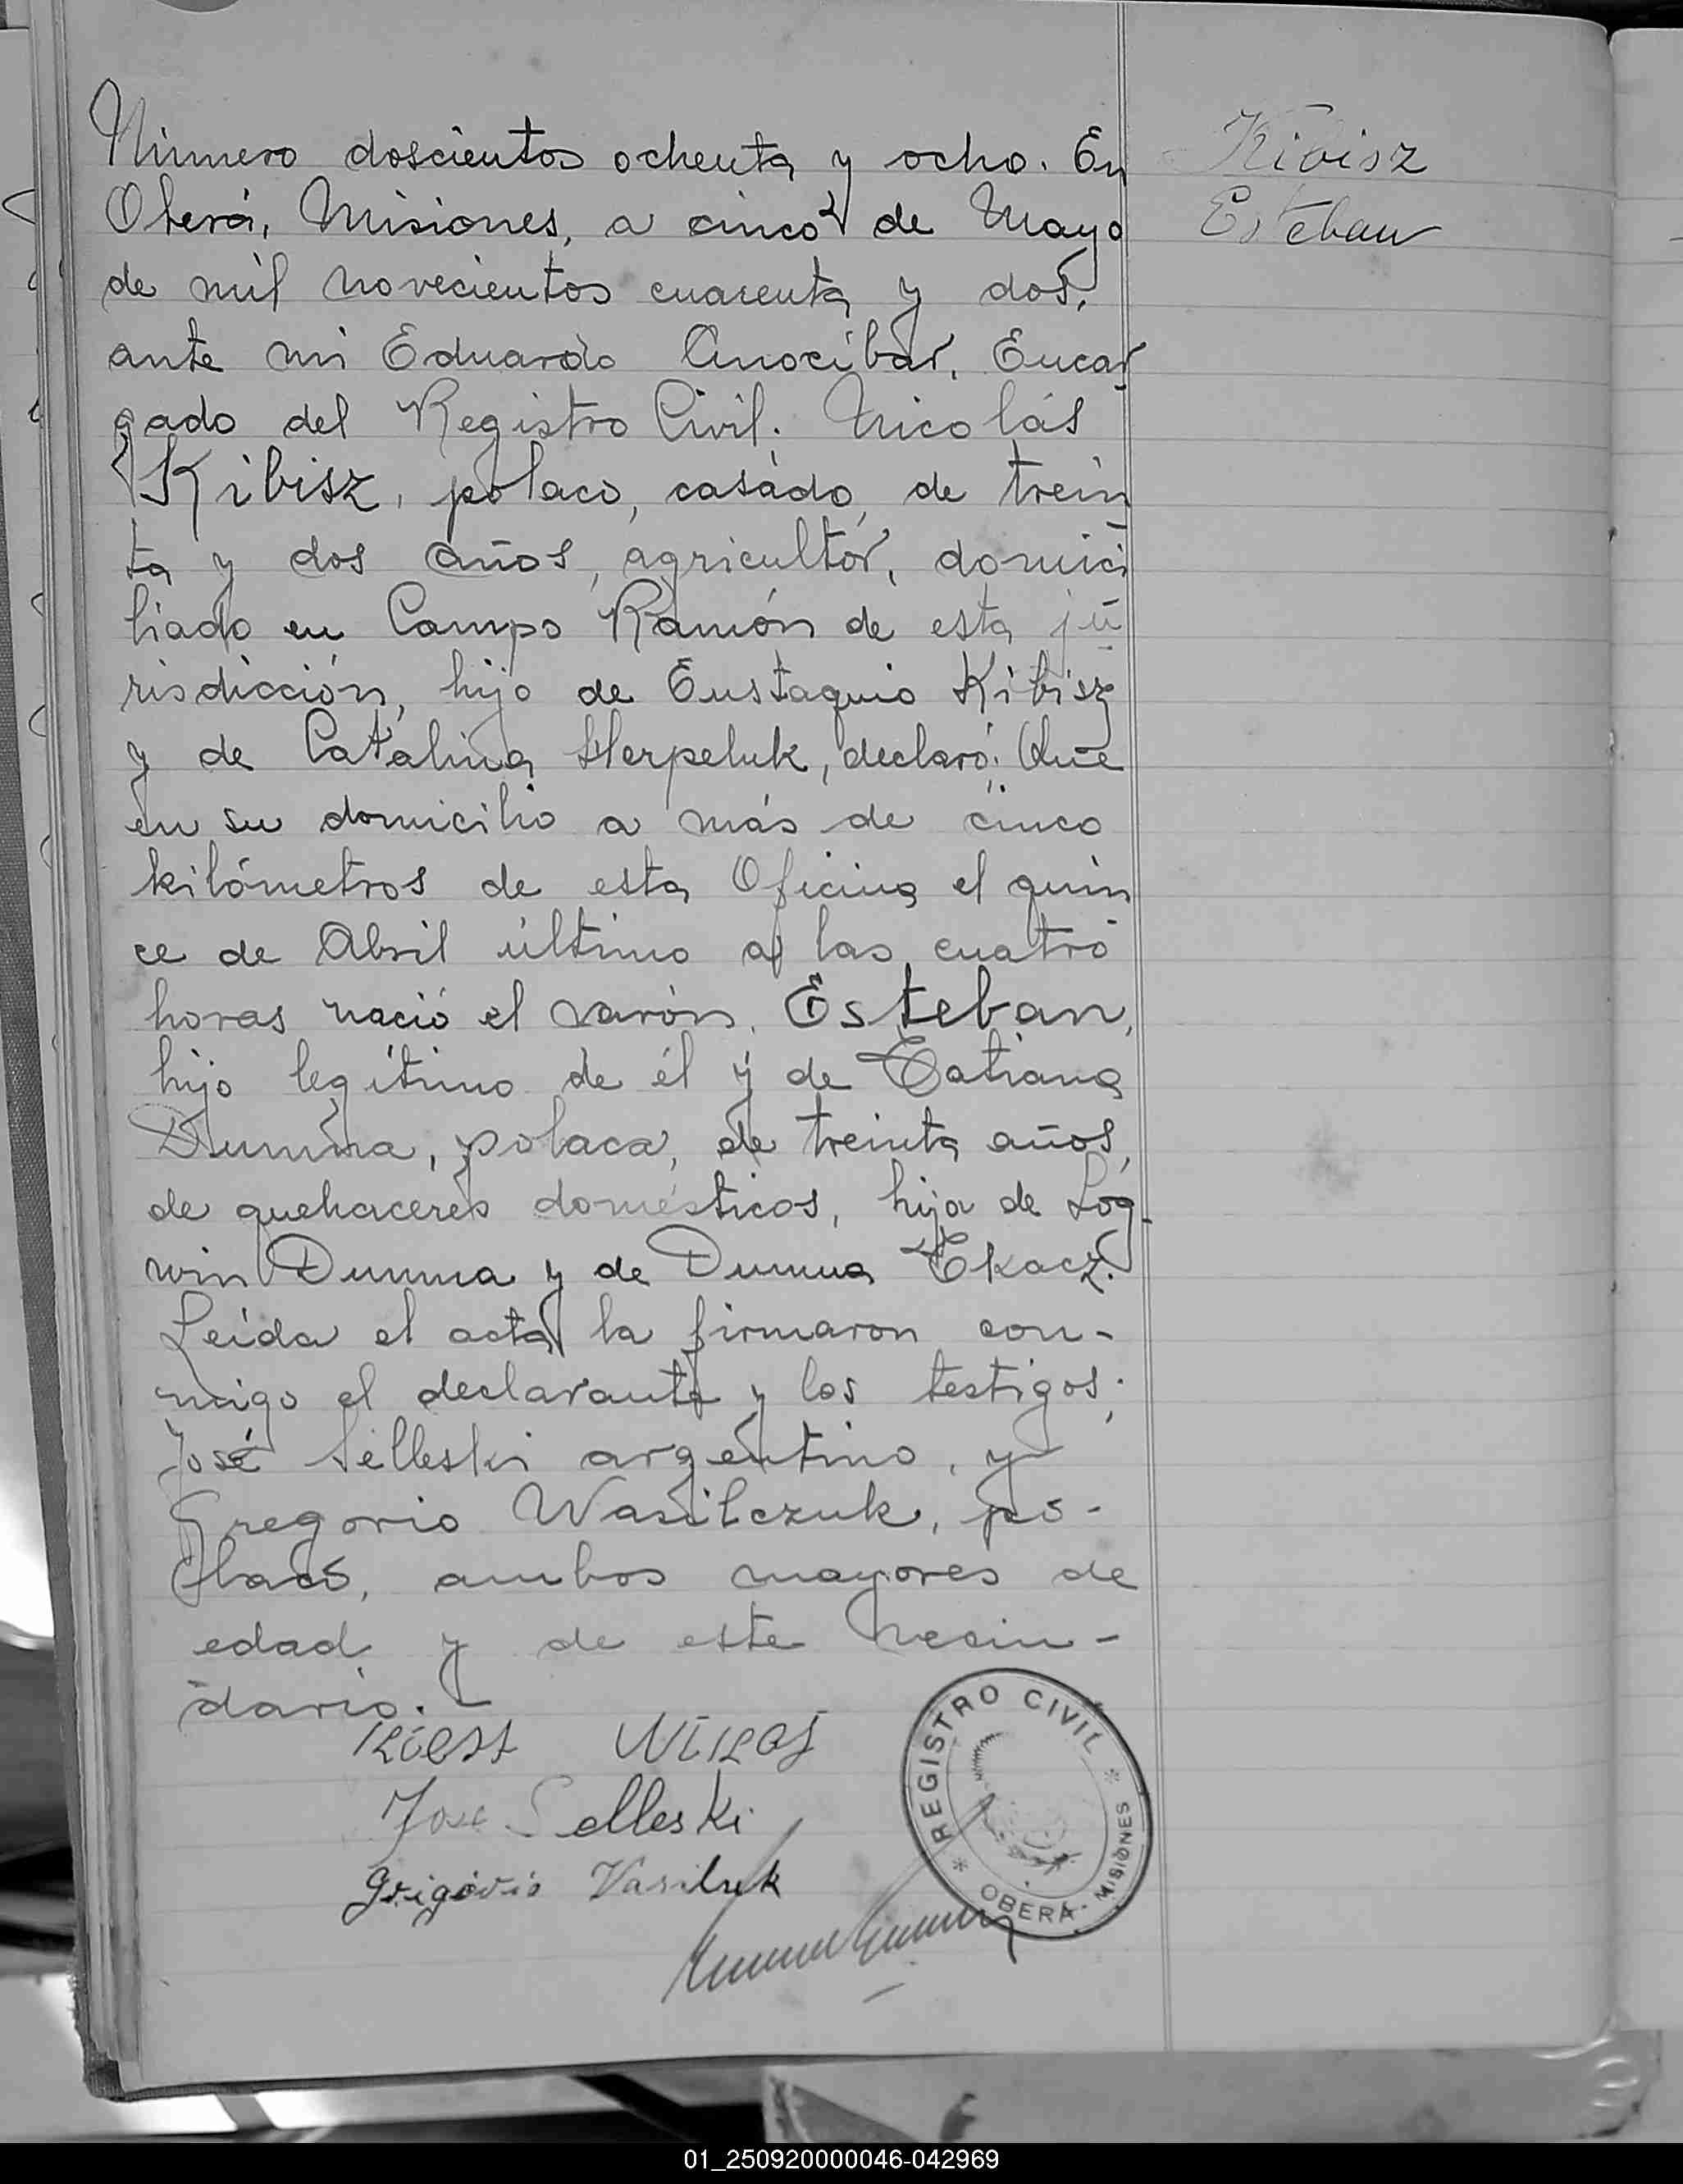 Número doscientos ochenta y ocho. En
Kibisz
Oberá, Misiones, a cinco de Mayo
Esteban
de mil novecientos cuarenta y dos,
ante mi Eduardo Anocibar, Encar
gado del Registro Civil. Nicolás
Kibisz, polaco, casado, de trein
ta y dos años, agricultor, domici
liado en Campo Ramón de esta ju
risdicción, hijo de Eustaquio Kibisz
y de Catalina Herpeluk, declaró: Que
en su domicilio a más de cinco
kilómetros de esta Oficina el quin
ce de Abril último a las cuatro
horas nació el varón, Esteban,
hijo legítimo de él y de Tatiana
Dumma, polaca, de treinta años,
de quehaceres domésticos, hija de Log-
win Dumma y de Dumna Tkacz.
Leída el acta la firmaron con-
migo el declarante y los testigos:
José Selleski argentino, y
Gregorio Wasilczuk, po-
laco, ambos mayores de
edad y de este vecin-
dario.
Jose Selleski
Grigorio Vasiluk
REGISTRO CIVIL
* OBERÁ - MISIONES *
01_250920000046-042969